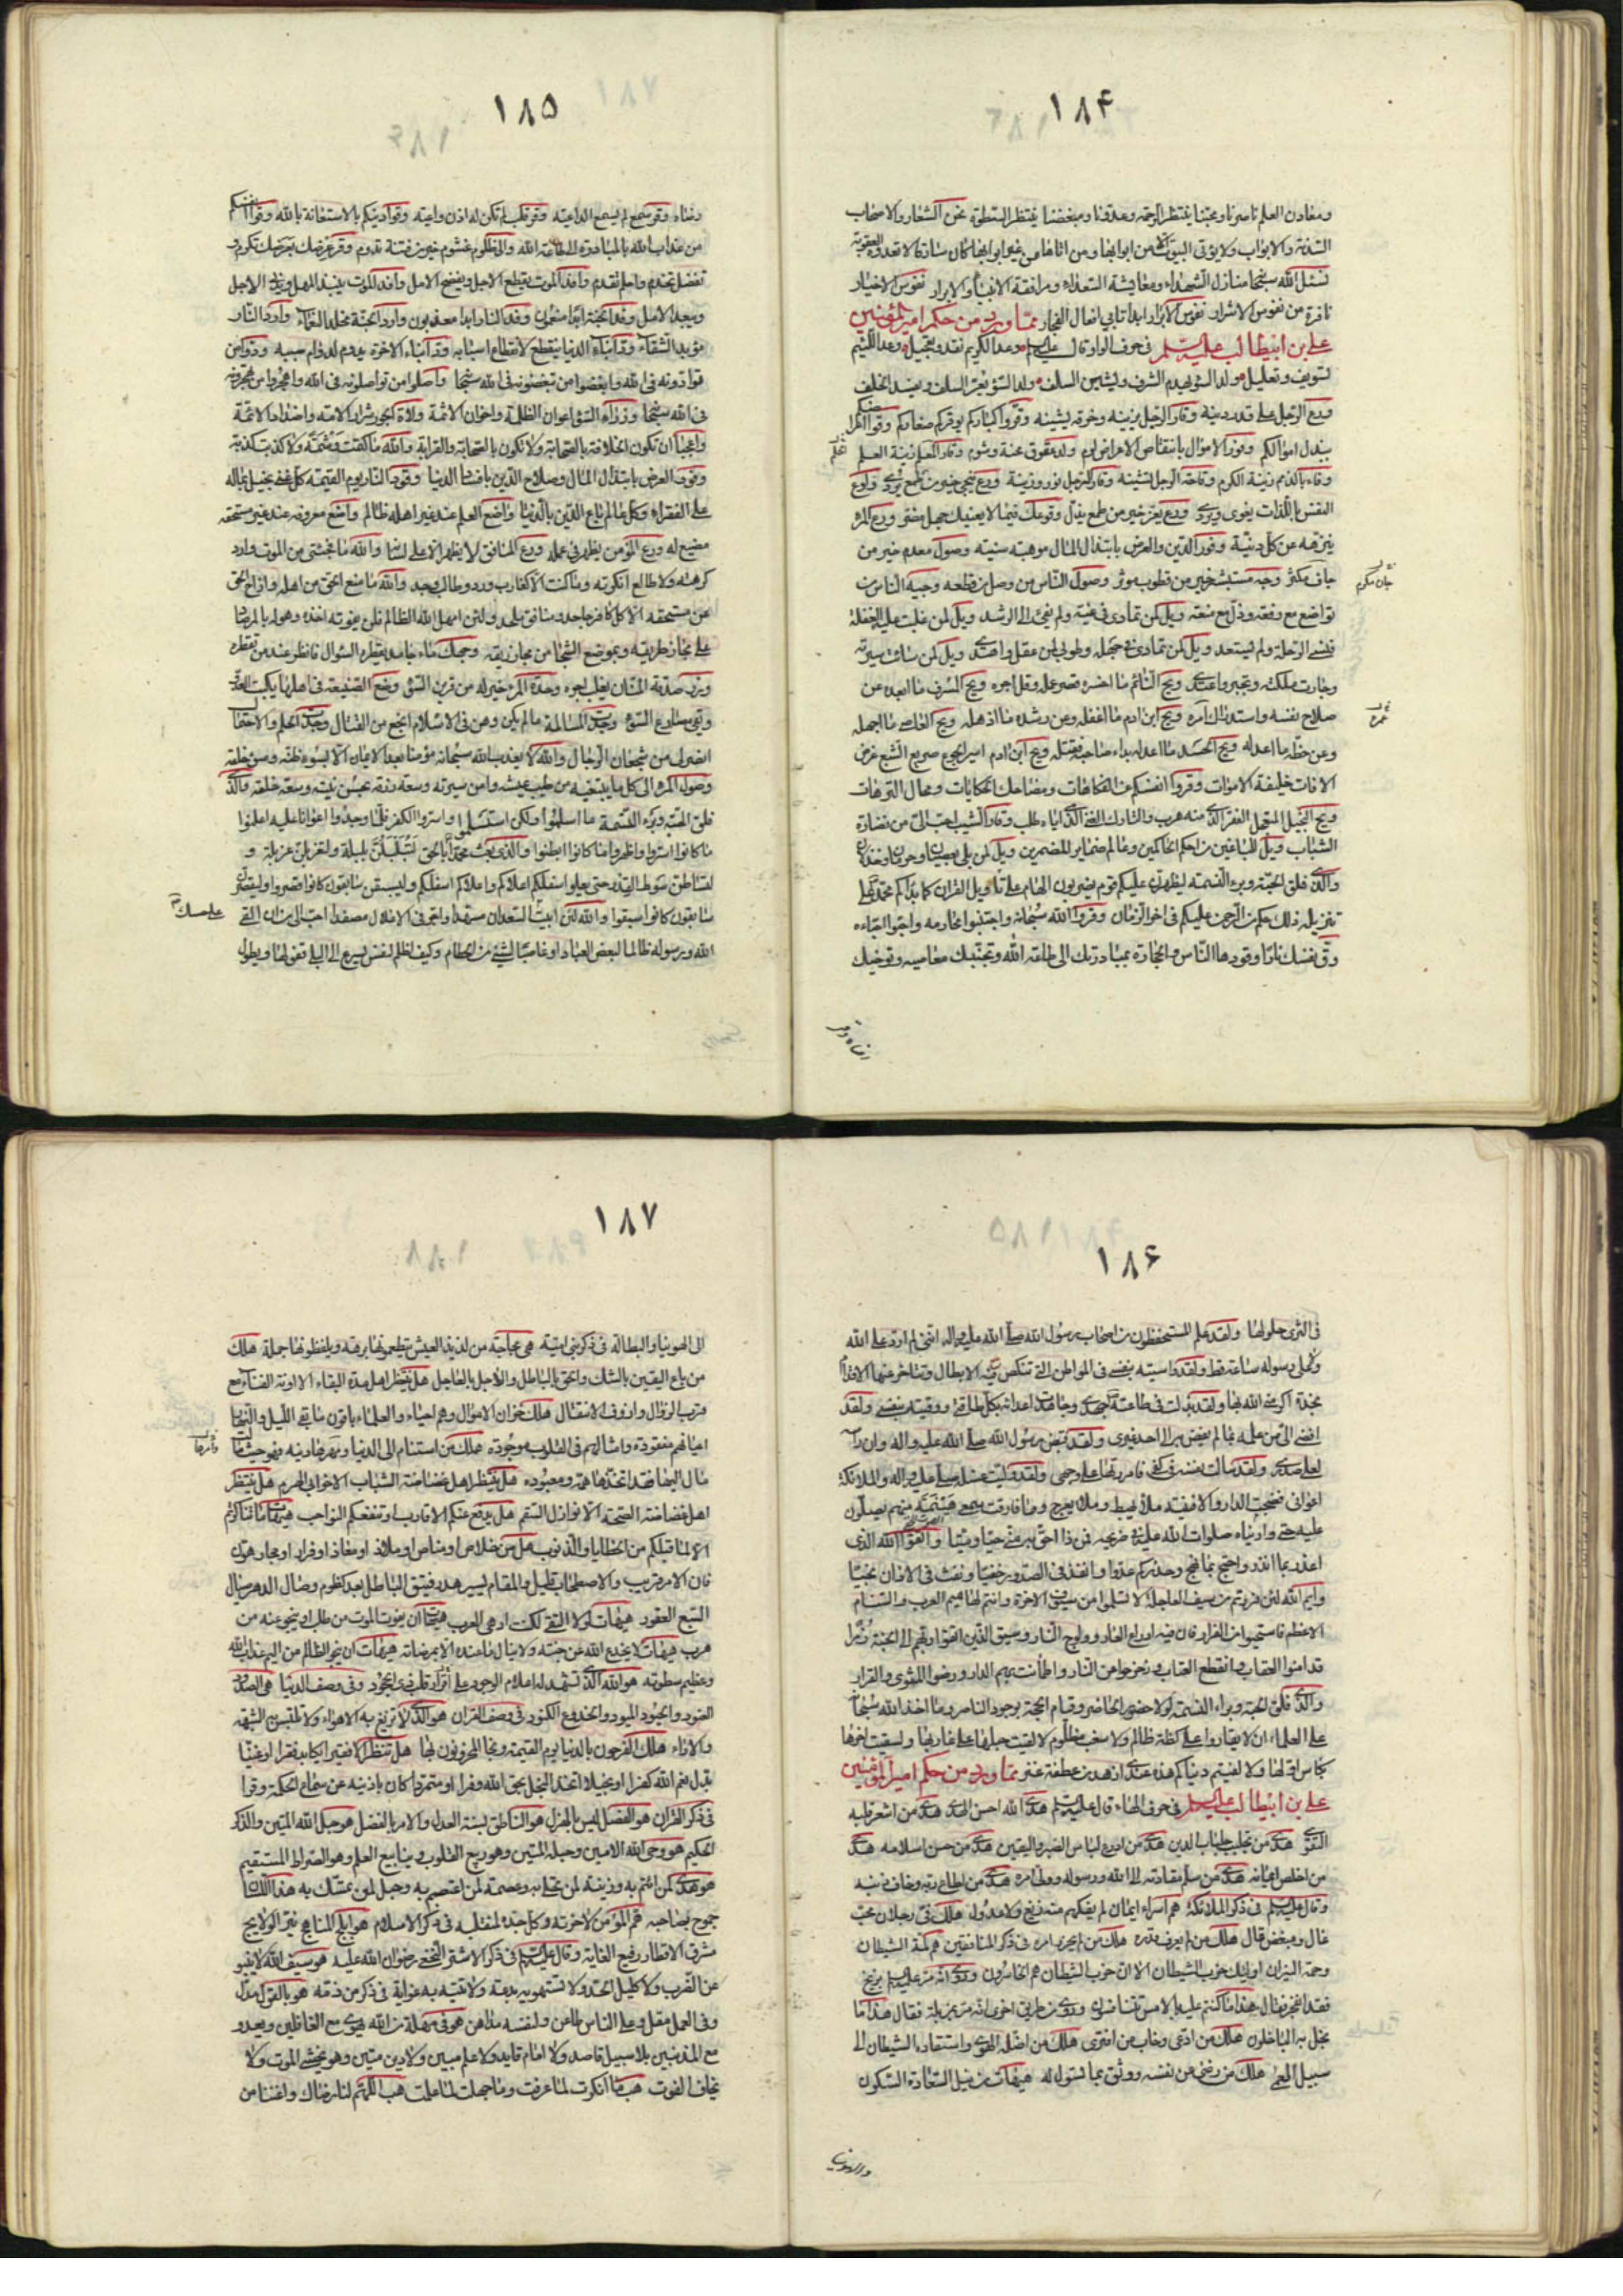 ١٨۴
ومعادن العلم ناصرنا ومحبنا ينتظر الرحمة وعدونا ومبغضنا ينتظر السطوة نحن الشعار والاصحاب
السدنة والابواب ولا يؤتى البيوت الا من ابوابها ومن اتاها من غير ابوابها كان سارقا لا تعدوه العقوبة
نسئل الله سبحانه منازل الشهداء ومعايشة السعداء ومرافقة الانبياء والابرار نفوس الاخيار
نافرة من نفوس الاشرار نفوس الابرار ابدا تابى افعال الفجار مما ورد من حكم امير المؤمنين
على بن ابيطالب عليه السلم فى حرف الواو قال عليه السلم وعد الكريم نقد وتعجيل وعد اللئيم
تسويف وتعليل ولد السوء يهدم الشرف ويشين السلف ولد السوء يعر السلف ويفسد الخلف
ورع الرجل على قدر دينه وقار الرجل يزينه وخرقه يشينه وقروا كباركم يوقركم صغاركم وقوا اعراضكم
ببذل اموالكم وفور الاموال بانتقاص الاعراض لوم ولد عقوق محنة وشوم وقار الحلم زينة العلم
وفاء بالذمم زينة الكرم وقاحة الرجل تشينه وقار الرجل نور وزينة ورع ينجى خير من طمع يردى ولوع
النفس باللذات يغوى ويردى ورع يعز خير من طمع يذل وقوعك فيما لا يعنيك جهل مضر ورع المرء
ينزهه عن كل دنية وفور الدين والعرض بابتذال المال موهبة سنية وصول معدم خير من
جاف مكثر وجه مستبشر خير من قطوب موثر وصول الناس من وصل من قطعه وجيه الناس من
تواضع مع رفعة وذل مع منعة ويل لمن تمادى فى غيه ولم يفئ الى الرشد ويل لمن غلبت عليه الغفلة
فنسى الرحلة ولم يستعد ويل لمن تمادى فى جهله وطوبى لمن عقل واهتدى ويل لمن سائت سيرته
وجارت ملكته وتجبر واعتدى ويح النائم ما اخسره قصر عمله وقل اجره ويح المسرف ما ابعده عن
صلاح نفسه واستدراك امره ويح ابن ادم ما اغفله وعن رشده ما اذهله ويح العاصى ما اجهله
وعن حظه ما اعدله ويح الحسد ما اعدله بداء صاحبه فقتله ويح ابن ادم اسير الجوع صريع الشبع غرض
الافات خليفة الاموات وقروا انفسكم عن الفكاهات ومضاحك الحكايات ومحال الترهات
ويح البخيل المتعجل الفقر الذى منه هرب والتارك الغنى الذى اياه طلب وقار الشيب احب الى من نضارة
الشباب ويل للباغين من احكم الحاكمين وعالم ضماير المضمرين ويل لمن بلى بعصيان وحرمان وخذلان
والذى فلق الحبة وبرء النسمة ليظهرن عليكم قوم يضربون الهام على تاويل القران كما بداكم محمد على
تنزيله ذلك حكم من الرحمن عليكم فى اخر الزمان وقروا الله سبحانه واجتنبوا محارمه واحبوا احباءه
وق نفسك نارا وقودها الناس والحجارة بمبادرتك الى طاعة الله وتجنبك معاصيه وتوخيك
١٨۵
رضاه وقر سمع لم يسمع الداعية وقر قلب لم تكن له اذن واعية وقوا دينكم بالاستعانة بالله وقوا انفسكم
من عذاب الله بالمبادرة الى طاعة الله وال ظلوم غشوم خير من فتنة تدوم وقر عرضك بعرضك تكرم و
تفضل تخدم واحلم تقدم وافد الموت يقطع الاجل ويفضح الامل وافد الموت يبيد المهل ويدنى الاجل
ويبعد الامل وفد الجنة ابدا منعمون وفد النار ابدا معذبون وارد الجنة مخلد النعماء وارد النار
مؤبد الشقاء ود ابناء الدنيا ينقطع لانقطاع اسبابه ود ابناء الاخرة يدوم لدوام سببه وادوا من
توادونه فى الله وابغضوا من تبغضونه فى الله سبحانه واصلوا من تواصلونه فى الله واهجروا من تهجرونه
فى الله سبحانه وزراء السوء اعوان الظلمة واخوان الاثمة ولاة الجور شرار الامة واضداد الائمة
واعجبا ان تكون الخلافة بالصحابة ولا تكون بالصحابة والقرابة والله ما كتمت وشمة ولا كذبت كذبة
وفور العرض بابتذال المال وصلاح الدين بافساد الدنيا وقود النار يوم القيمة كل غنى بخيل بماله
على الفقراء وكل عالم باع الدين بالدنيا واضع العلم عند غير اهله ظالم واضع معروفه عند غير مستحقه
مضيع له ورع المؤمن يظهر فى عمله ورع المنافق لا يظهر الا على لسانه والله ما فجئنى من الموت وارد
كرهته ولا طالع انكرته وما كنت الا كقارب ورد وطالب وجد والله ما منع الحق من اهله وازاح الحق
عن مستحقه الا كل كافر جاحد ومنافق ملحد ولئن امهل الله الظالم فلن يفوته اخذه وهو له بالمرصاد
على مجاز طريقه وبموضع الشجا من مجاز ريقه وجهك ماء جامد يقطره السؤال فانظر عند من تقطره
وزر صدقة المنان يغلب اجره وحدة المرء خير له من قرين السوء وضع الصنيعة فى اهلها يكبت العدو
ويقى مصارع السوء وجدت المسالمة ما لم يكن وهن فى الاسلام انجع من القتال وجدت الحلم والاحتمال
انصر لى من شجعان الرجال والله لا يعذب الله سبحانه مؤمنا بعد الايمان الا بسوء ظنه وسوء خلقه
وصول المرء الى كل ما يبتغيه من طيب عيشه وامن سربه وسعة رزقه بحسن نيته وسعة خلقه والذى
فلق الحبة وبرء النسمة ما اسلموا ولكن استسلموا واسروا الكفر فلما وجدوا اعوانا عليه اعلنوا
ما كانوا اسروا واظهروا ما كانوا ابطنوا والذى بعث محمدا بالحق لتبلبلن بلبلة ولتغربلن غربلة و
لتساطن سوط القدر حتى يعلو اسفلكم اعلاكم واعلاكم اسفلكم وليسبقن سابقون كانوا قصروا وليقصرن
سابقون كانوا سبقوا والله لئن ابيت على حسك السعدان مسهدا واجر فى الاغلال مصفدا احب الى من ان القى
الله ورسوله ظالما لبعض العباد او غاصبا لشئ من الحطام وكيف اظلم لنفس يسرع الى البلى قفولها ويطول
١٨۶
فى الثرى حلولها ولقد علم المستحفظون من اصحاب رسول الله صلى الله عليه واله اننى لم ارد على الله
ولا على رسوله ساعة قط ولقد واسيته بنفسى فى المواطن التى تنكص فيه الابطال وتتاخر عنها الاقدام
نجدة اكرمنى الله بها ولقد بذلت فى طاعته جهدى وجاهدت اعدائه بكل طاقتى ووقيته بنفسى ولقد
افضى الى من علمه بما لم يفض به الى احد غيرى ولقد قبض رسول الله صلى الله عليه واله وان راسه
لعلى صدرى ولقد سالت نفسه فى كفى فامررتها على وجهى ولقد وليت غسله صلى الله عليه واله والملائكة
اعوانى فضجت الدار والافنية ملا يهبط وملا يعرج وما فارقت سمعى هينمة منهم يصلون
عليه حتى واريناه صلوات الله عليه فى ضريحه فمن ذا احق به منى حيا وميتا واتقوا الله الذى
اعذر بما انذر واحتج بما نهج وحذركم عدوا نفذ فى الصدور خفيا ونفث فى الاذان نجيا
وايم الله لئن فررتم من سيف العاجلة لا تسلموا من سيوف الاخرة وانتم لهاميم العرب والسنام
الاعظم فاستحيوا من الفرار فان فيه ادراع العار وولوج النار وسيق الذين اتقوا ربهم الى الجنة زمرا
قد امنوا العقاب وانقطع العتاب وزحزحوا عن النار واطمانت بهم الدار ورضوا المثوى والقرار
والذى فلق الحبة وبراء النسمة لولا حضور الحاضر وقيام الحجة بوجود الناصر وما اخذ الله سبحانه
على العلماء ان لا يقاروا على كظة ظالم ولا سغب مظلوم لالقيت حبلها على غاربها ولسقيت اخرها
بكاس اولها ولالفيتم دنياكم هذه عندى ازهد من عطفة عنز مما ورد من حكم امير المؤمنين
على بن ابيطالب عليه السلم فى حرف الهاء قال عليه السلم هدى الله احسن الهدى هدى من اشعر قلبه
التقوى هدى من تجلبب جلباب الدين هدى من ادرع لباس الصبر واليقين هدى من حسن اسلامه هدى
من اخلص ايمانه هدى من سلم مقادته الى الله ورسوله وولى امره هدى من اطاع ربه وخاف ذنبه
وقال عليه السلم فى ذكر الملائكة هم اسراء ايمان لم يفكهم منه زيغ ولا عدول هلك فى رجلان محب
غال ومبغض قال هلك من لم يعرف قدره هلك من لم يحرز امره فى ذكر المنافقين هم لمة الشيطان
وحمة النيران اولئك حزب الشيطان الا ان حزب الشيطان هم الخاسرون وروى انه مر عليه السلم بمزبلة
فقد انفجر فقال هذا ما كنتم عليه بالامس تتنافسون وروى من طريق اخرى انه مر بمزبلة فقال هذا ما
بخل به الباخلون هلك من ادعى وخاب من افترى هلك من اضله الهوى واستقاده الشيطان الى
سبيل العمى هلك من رضى عن نفسه ووثق بما تسوله له هيهات من نيل السعادة السكون
١٨٧
الى الهوينا والبطالة فى ذكر بنى امية هى مجاجة من لذيذ العيش يتطعمونها برهة ويلفظونها جملة هلك
من باع اليقين بالشك والحق بالباطل والاجل بالعاجل هل ينتظر اهل مدة البقاء الا اونة الفناء مع
قرب الزوال وازوف الانتقال هلك خزان الاموال وهم احياء والعلماء باقون ما بقى الليل والنهار
اعيانهم مفقودة وامثالهم فى القلوب موجودة هلك من استنام الى الدنيا وامهرها دينه فهو حيثما
مال اليها قد اتخذها همه ومعبوده هل ينتظر اهل غضاضة الشباب الا حوانى الهرم هل ينتظر
اهل غضاضة الصحة الا نوازل السقم هل يدفع عنكم الاقارب او تنفعكم النواحب هيهات ما تناكرتم
الا لما قبلكم من الخطايا والذنوب هل من خلاص او مناص او ملاذ او معاذ او فرار او محار هون
فان الامر قريب والاصطحاب قليل والمقام يسير هدر فنيق الباطل بعد كظوم وصال الدهر صيال
السبع العقور هيهات لولا التقى لكنت ادهى العرب هيهات ان يفوت الموت من طلب او ينجو عنه من
هرب هيهات لا يخدع الله عن جنته ولا ينال ما عنده الا بمرضاته هيهات ان ينجو الظالم من اليم عذاب الله
وعظيم سطوته هو الله الذى تشهد له اعلام الوجود على اقرار قلب ذى الجحود وفى وصف الدنيا هى الصدود
العنود والحيود الميود والخدوع الكنود فى وصف القران هو الذى لا تزيغ به الاهواء ولا تلتبس به الشبهة
والاراء هلك الفرحون بالدنيا يوم القيمة ونجا المحزونون بها هل تنظر الا فقيرا يكابد فقرا او غنيا
بدل نعم الله كفرا او بخيلا اتخذ البخل بحق الله وفرا او متمردا كان باذنيه عن سماع الحكمة وقرا
فى ذكر القران هو الفصل ليس بالهزل هو الناطق بسنة العدل والامر بالفضل هو حبل الله المتين والذكر
الحكيم هو وحى الله الامين وحبله المتين وهو ربيع القلوب وينابيع العلم وهو الصراط المستقيم
هو هدى لمن ائتم به وزينة لمن تحلى به وعصمة لمن اعتصم به وحبل لمن تمسك به هذا اللسان
جموح بصاحبه هم المؤمن لاخرته وكل جده لمنقلبه فى ذكر الاسلام هو ابلج المناهج نير الولايج
مشرق الاقطار رفيع الغاية وقال عليه السلم فى ذكر الاشتر النخعى رضوان الله عليه هو سيف الله لا ينبو
عن الضرب ولا كليل الحد ولا تستهويه بدعة ولا تتيه به غواية فى ذكر من ذمه هو بالقول مدل
وفى العمل مقل وعلى الناس طاعن ولنفسه مداهن هو فى مهلة من الله يهوى مع الغافلين ويغدو
مع المذنبين بلا سبيل قاصد ولا امام قايد ولا علم مبين ولا دين متين وهو يخشى الموت ولا
يخاف الفوت هب ما انكرت لما عرفت وما جهلت لما علمت هب اللهم لنا رضاك واغننا عن